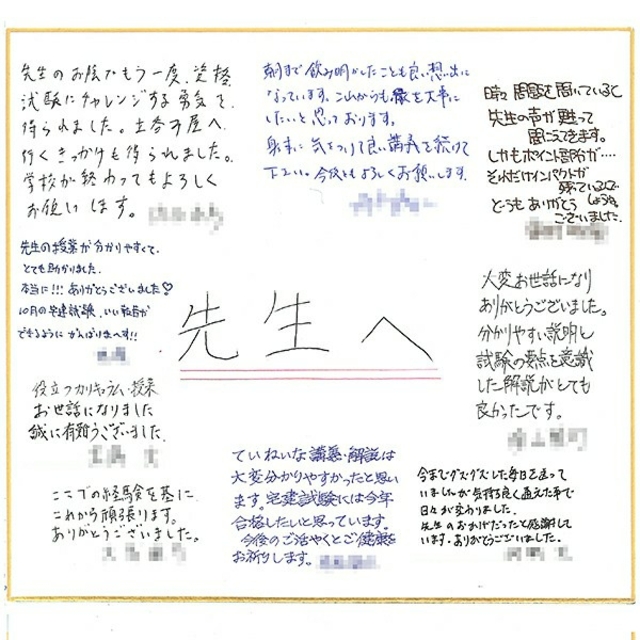 先生のお陰でもう一度、資格
試験にチャレンジする勇気を
得られました。土壱夛屋へ
行くきっかけも得られました。
学校が終わってもよろしく
お願いします。
朝まで飲み明かしたことも良い想い出に
なっています。これからも縁を大事に
したいと思っております。
身体に気をつけて良い講義を続けて
下さい。今後ともよろしくお願いします。
時々問題を聞いていると
先生の声が甦って
聞こえてきます。
しかもポイント部分が…
それだけインパクトが
残っているのでしょうね。
どうもありがとう
ございました。
先生の授業が分かりやすくて、
とても助かりました。
本当に!!!ありがとうございました♡
10月の宅建試験、いい報告が
できるように がんばりまーす!!
先生へ
大変お世話になり
ありがとうございました。
分かりやすい説明と
試験の要点を意識
した解説がとても
良かったです。
役立つカリキュラム・授業
お世話になりました
誠に有難うございました。
ここでの経験を基に
これから頑張ります。
ありがとうございました。
ていねいな講義・解説は
大変分かりやすかったと思い
ます。宅建試験には今年
合格したいと思っています。
今後のご活やくとご健勝を
お祈りします。
今までグズグズした毎日を送って
いましたが気持ち良く通えた事で
日々が変わりました。
先生のおかげだったと感謝して
います。ありがとうございました。